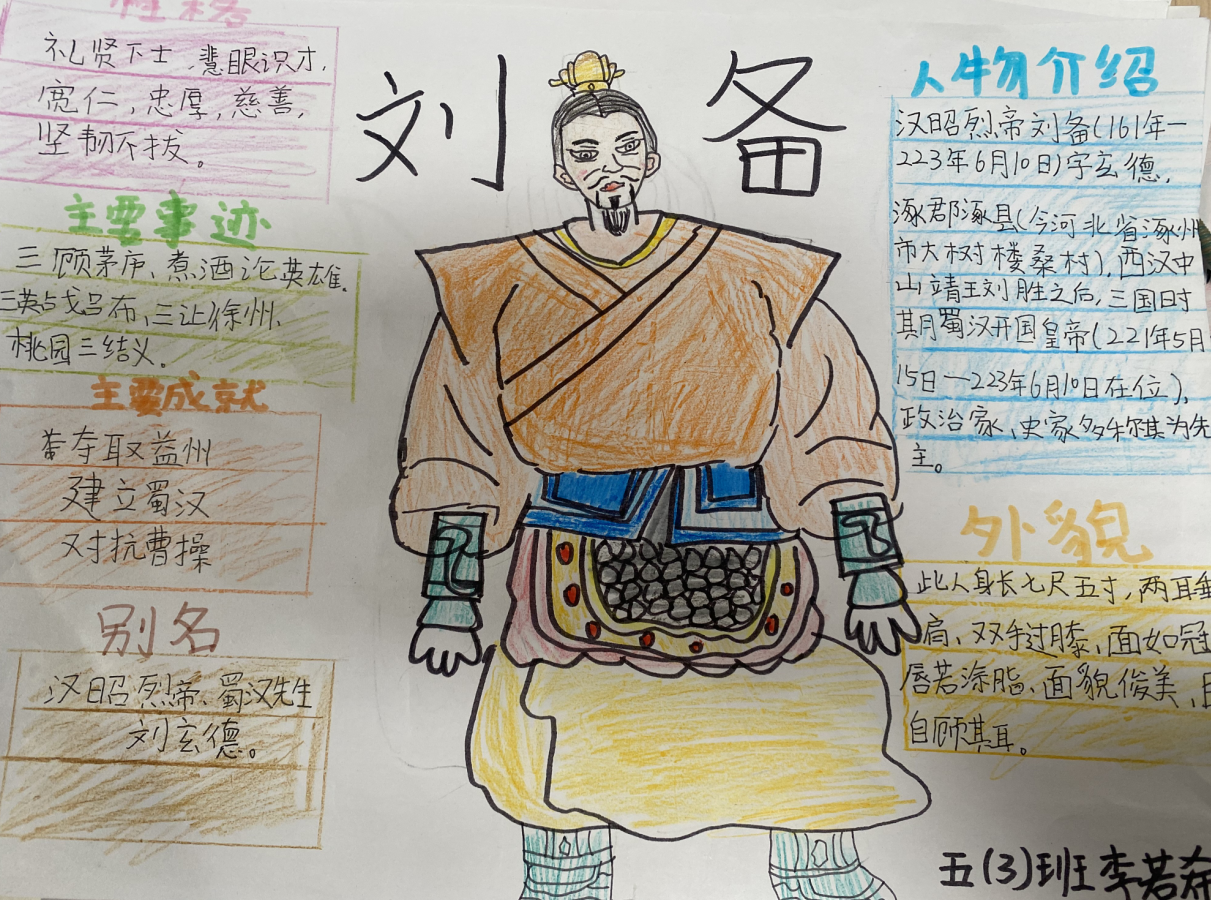 性格
礼贤下士,慧眼识才,
宽仁,忠厚,慈善,
坚韧不拔。
刘备
主要事迹
三顾茅庐、煮酒论英雄、
三英战吕布、三让徐州、
桃园三结义。
主要成就
夺取益州
建立蜀汉
对抗曹操
别名
汉昭烈帝、蜀汉先生
刘玄德。
人物介绍
汉昭烈帝刘备(161年一
223年6月10日)字玄德,
涿郡涿县(今河北省涿州
市大树楼桑村),西汉中
山靖王刘胜之后,三国时
期蜀汉开国皇帝(221年5月
15日一223年6月10日在位),
政治家、史家多称其为先
主。
外貌
此人身长七尺五寸,两耳垂
肩、双手过膝,面如冠
唇若涂脂、面貌俊美,目
自顾其耳。
五(3)班李若